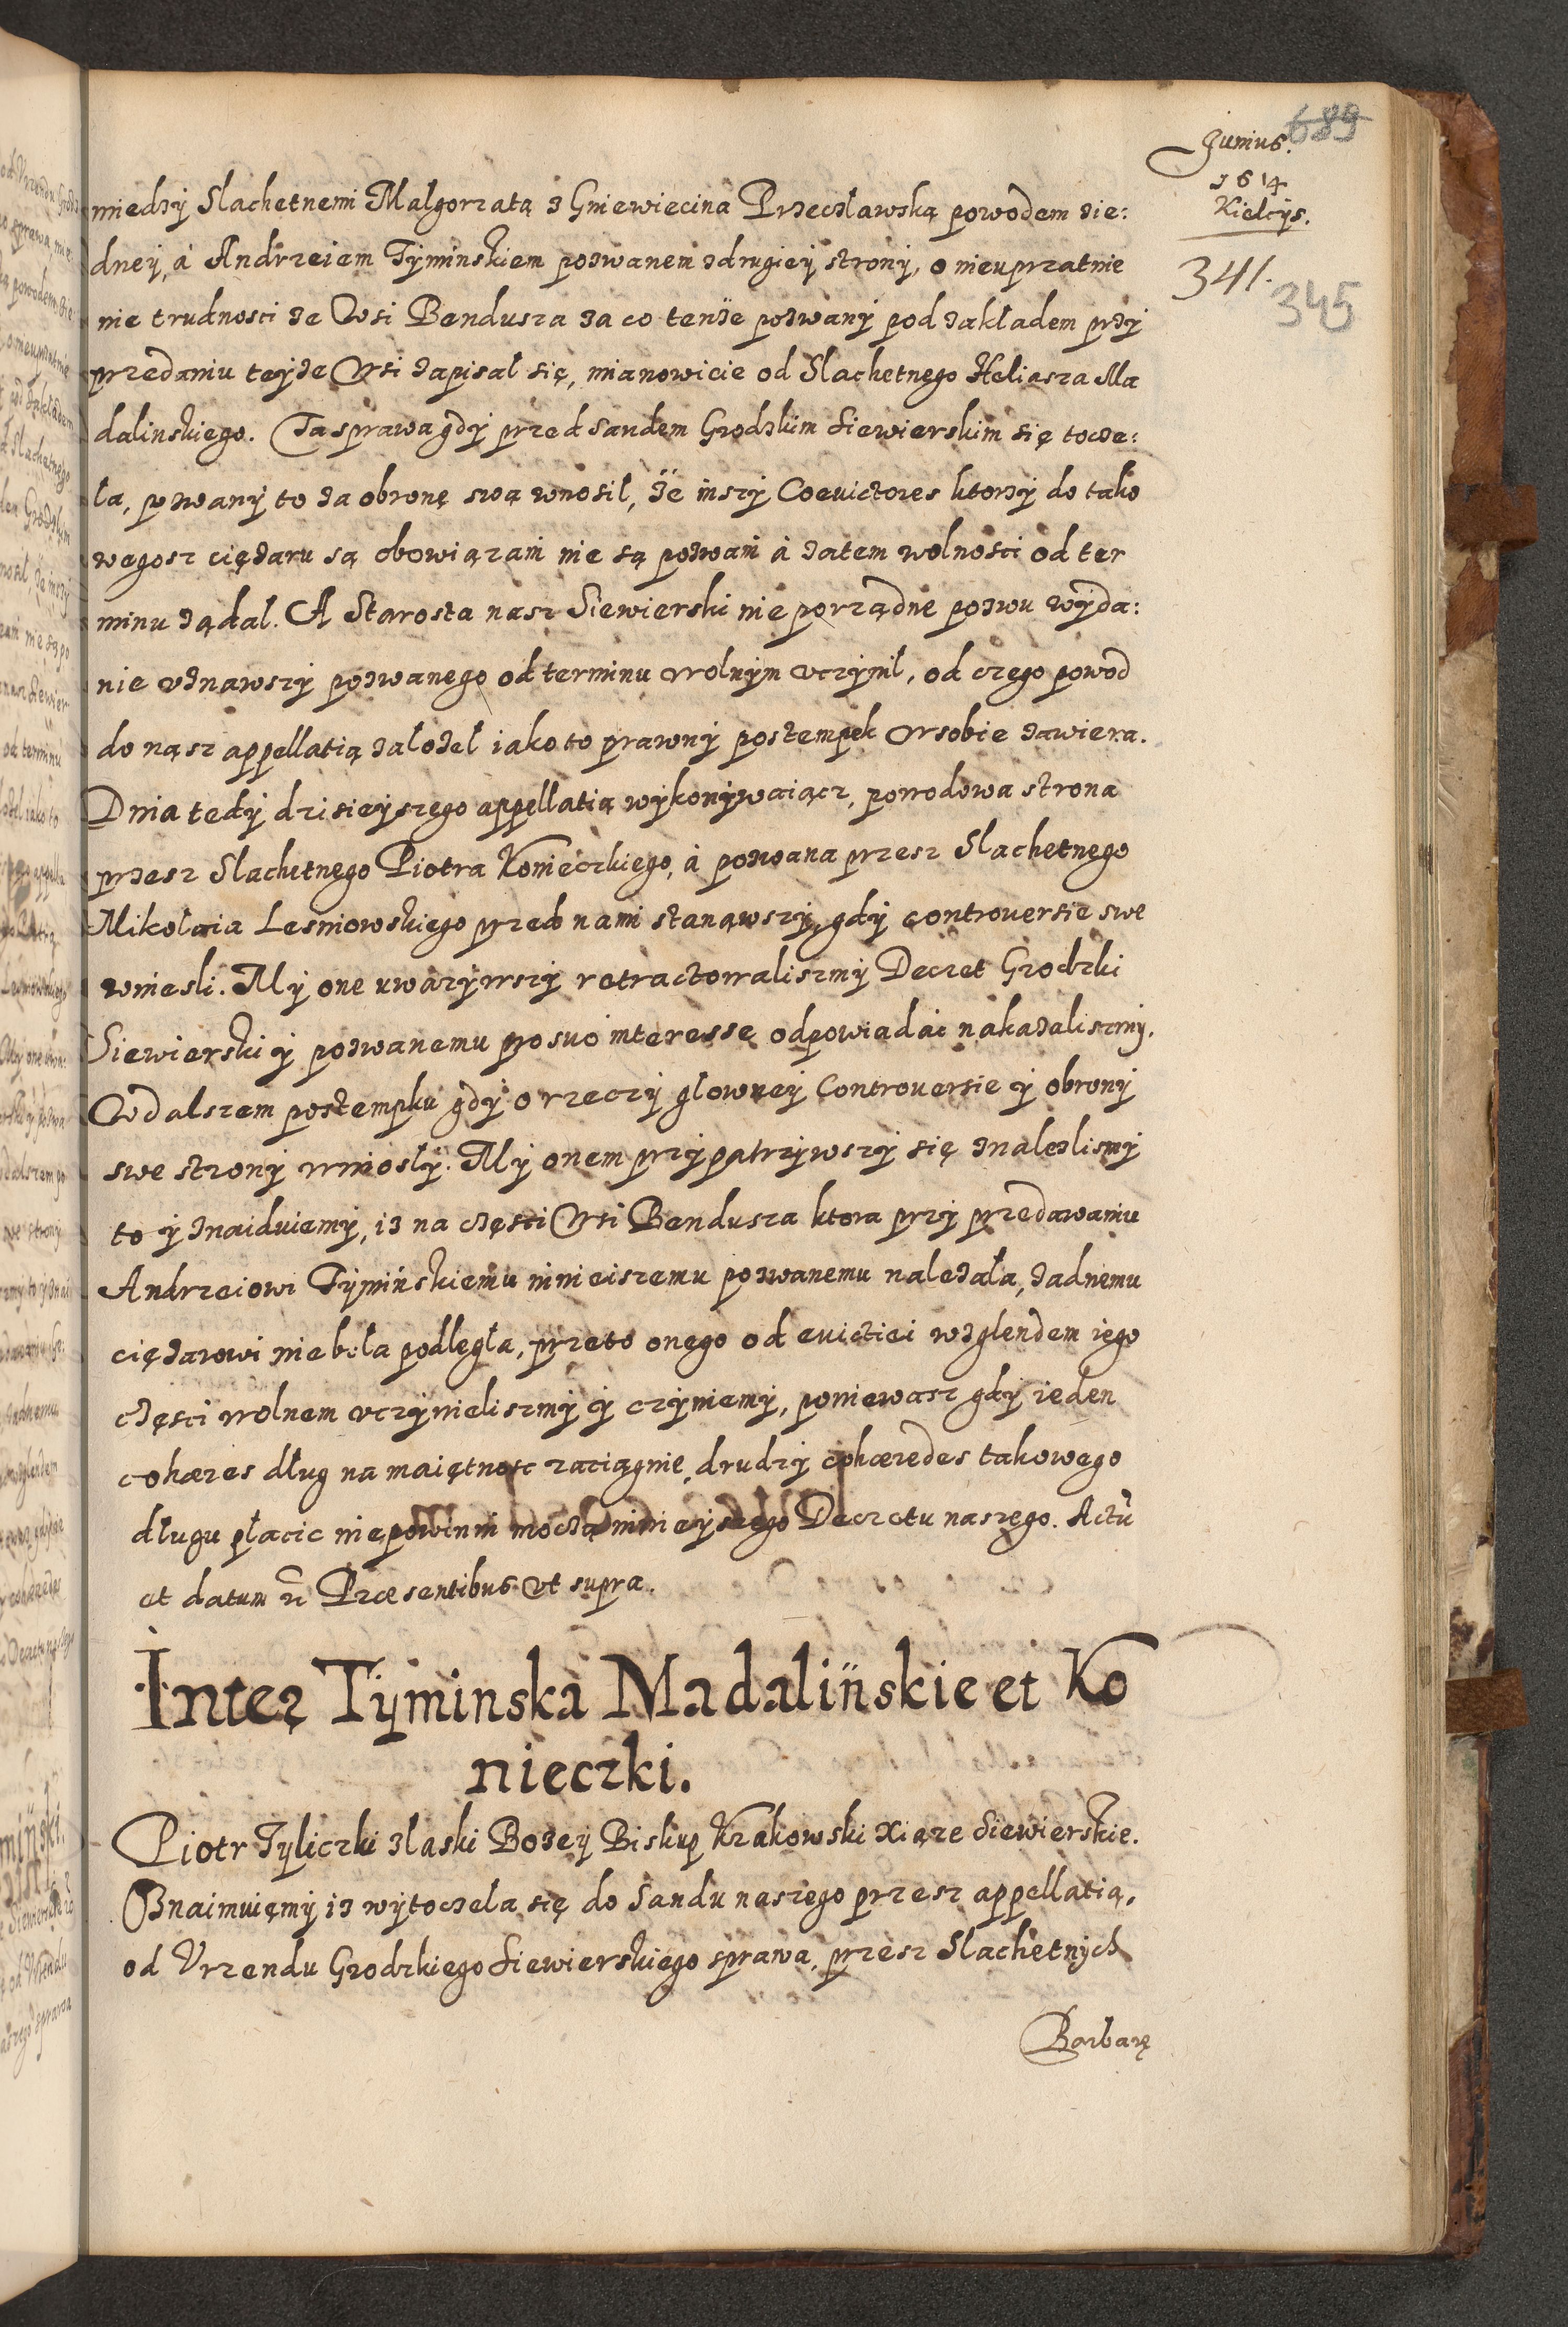 Junius. 689
1614
Kielcys.
341.
345
miedzy Slachetnemi Malgorzatą z Gniewiecina Przecslawską powodem zie:
dney, á Andrzeiem Tyminskiem pozwanem zdrugiey strony, o nieuprzatnie
nie trudnosci ze Wsi Bendusza za co tenze pozwany pod zakładem przy
przedaniu teyze Wsi zapisal się, mianowicie od Slachetnego Heliasza Ma
dalinskiego. Ta sprawa gdy przed Sandem Grodzkim Siewierskim się tocze:
la, pozwany to za obronę swą wnosil, ze inszy Coevictores ktorzy do tako
wegosz ciężaru są obowiązani nie są pozwani á zatem wolnosci od ter
minu ządal. A Starosta nasz Siewierski nie porządne pozwu wyda:
nie uznawszy pozwanego od terminu wolnym uczynil, od czego powod
do nąsz appellatią zalozel iako to prawny postempek w sobie zawiera.
Dnia tedy dzisieyszego appellatią wykonywaiącz, powodowa strona
przesz Slachetnego Piotra Konieczkiego, á pozwana przesz Slachetnego
Mikolaia Lesniowskiego przed nami stanąwszy, gdy controversie swe
wniesli. My one uwazywszy retractowaliszmy Decret Grodzki
Siewierski y pozwanemu pro suo interesse odpowiadać nakazaliszmy.
W dalszem postempku gdy o rzeczy glowney Controversie y obrony
swe strony wniosly. My onem przypatrzywszy się znalezlismy
to y znaiduiemy, iz na częsci Wsi Bendusza ktora przy przedawaniu
Andrzeiowi Tymińskiemu ninieiszemu pozwanemu należała, żadnemu
ciężarowi nie beła podlegla, przeto onego od evictiei względem iego
częsci wolnem uczynieliszmy y czyniemy, poniewasz gdy ieden
cohæres dług na maiętnosc zaciągnie, drudzy cohæredes takowego
długu płacic niepowinni moczą ninieyszego Decretu naszego. Actū
et datum ñ Præsentibus ut supra.
Inter Tyminska Madalińskie et Ko
nieczki.
Piotr Tyliczki zlaski Bozey Biskup Krakowski Xiąze Siewierskie.
Oznaimuięmy iz wytoczela się do Sandu naszego przesz appellatią,
od Urzendu Grodzkiego Siewierskiego sprawa, przesz Slachetnych
Barbarę